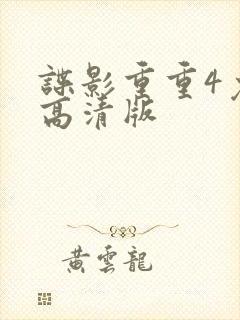 諜影重重4
高清版
黃雲龍